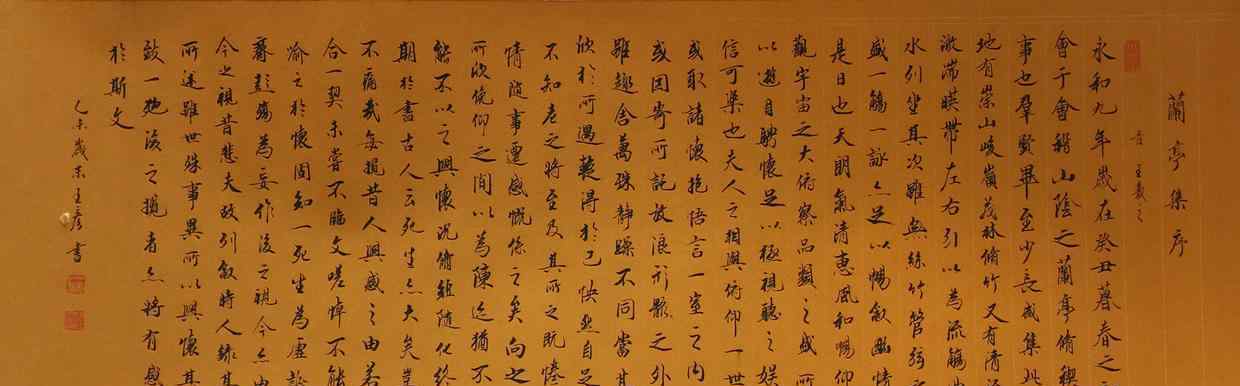 蘭亭集序
晉 王羲之
永和九年歲在癸丑暮春之
會于會稽山陰之蘭亭脩禊
事也羣賢畢至少長咸集此
地有崇山峻嶺茂林脩竹又有清流
激湍暎帶左右引以為流觴曲
水列坐其次雖無絲竹管弦之
盛一觴一詠亦足以暢敘幽情
是日也天朗氣清惠風和暢仰
觀宇宙之大俯察品類之盛所
以遊目騁懷足以極視聽之娛
信可樂也夫人之相與俯仰一世
或取諸懷抱悟言一室之內
或因寄所託放浪形骸之外
雖趣舍萬殊靜躁不同當其
欣於所遇輒得於己快然自足
不知老之將至及其所之既惓
情隨事遷感慨係之矣向之
所欣俛仰之間以為陳迹猶不
能不以之興懷況脩短隨化終
期於盡古人云死生亦大矣豈
不痛哉每攬昔人興感之由若
合一契未嘗不臨文嗟悼不能
喻之於懷固知一死生為虛誕
齊彭殤為妄作後之視今亦由
今之視昔悲夫故列敘時人錄其
所述雖世殊事異所以興懷其
致一也後之攬者亦將有感
於斯文
乙未歲末王彥書